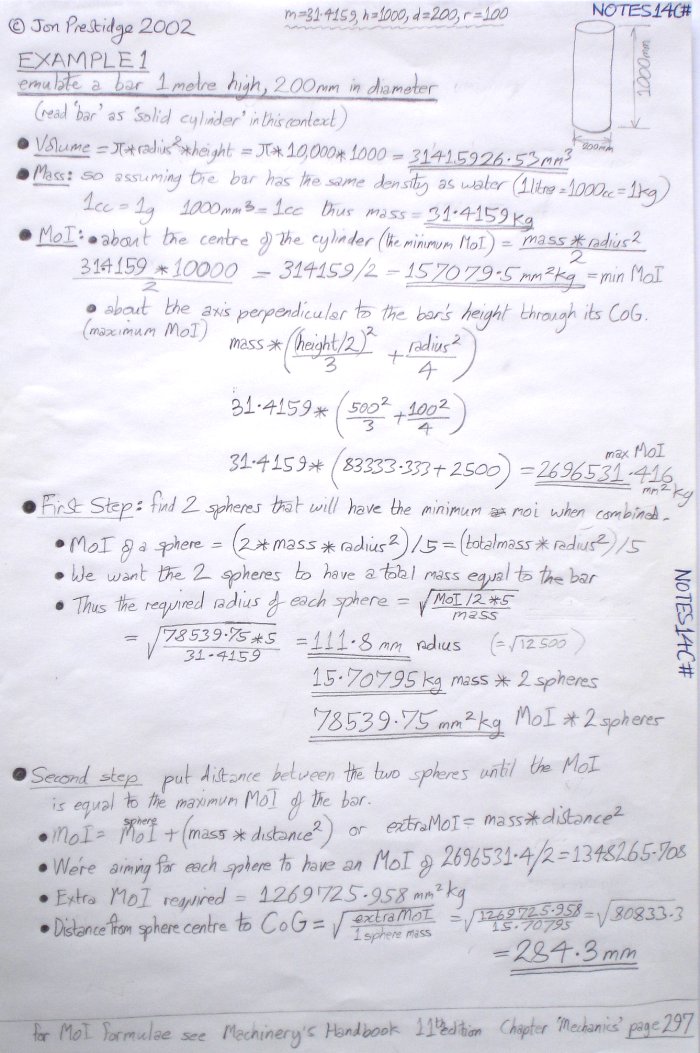 m=31·4159, h=1000, d=200, r=100
NOTES14C#
© Jon Prestidge 2002
EXAMPLE 1
emulate a bar 1 metre high, 200mm in diameter
(read 'bar' as 'solid cylinder' in this context)
1000mm
200mm
• Volume = π*radius²*height = π*10,000*1000 = 31415926·53mm³
• Mass: so assuming the bar has the same density as water (1 litre=1000cc=1kg)
1cc = 1g 1000mm³=1cc thus mass = 31·4159kg
• MoI: • about the centre of the cylinder (the minimum MoI) = mass*radius²/2
314159*10000/2 = 314159/2 = 157079·5 mm²kg = min MoI
• about the axis perpendicular to the bar's height through its CoG.
(maximum MoI) mass*((height/2)²/3 + radius²/4)
31·4159*(500²/3 + 100²/4)
31·4159*(83333·333+2500) = 2696531·416 mm²kg max MoI
• First Step: find 2 spheres that will have the minimum moi when combined.
• MoI of a sphere = (2*mass*radius²)/5 = (totalmass*radius²)/5
• We want the 2 spheres to have a total mass equal to the bar
• Thus the required radius of each sphere = √(MoI/2*5/mass)
= √(78539·75*5/31·4159) = 111·8 mm radius (=√12500)
15·70795kg mass * 2 spheres
78539·75 mm²kg MoI * 2 spheres
NOTES14C#
• Second step put distance between the two spheres until the MoI
is equal to the maximum MoI of the bar.
• MoI = sphere MoI + (mass * distance²) or extraMoI = mass*distance²
• We're aiming for each sphere to have an MoI of 2696531·4/2=1348265·708
• Extra MoI required = 1269725·958 mm²kg
• Distance from sphere centre to CoG = √(extraMoI/1 sphere mass) = √(1269725·958/15·70795) = √80833·3
= 284·3mm
for MoI formulae see Machinery's Handbook 11th edition Chapter 'Mechanics' page 297